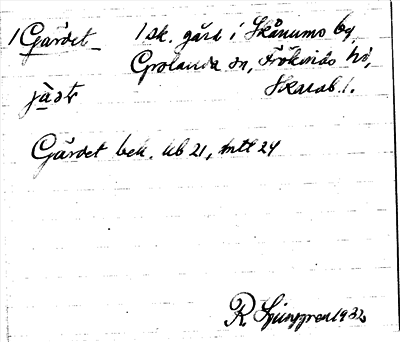 1 Gärdet 1 sk. gård i Skånums by,
Grolanda sn, Frökinds hd,
jàstr Skarab. l.
Gärdet bek. Ub 21, mtl 24
R. Ljunggren 1932